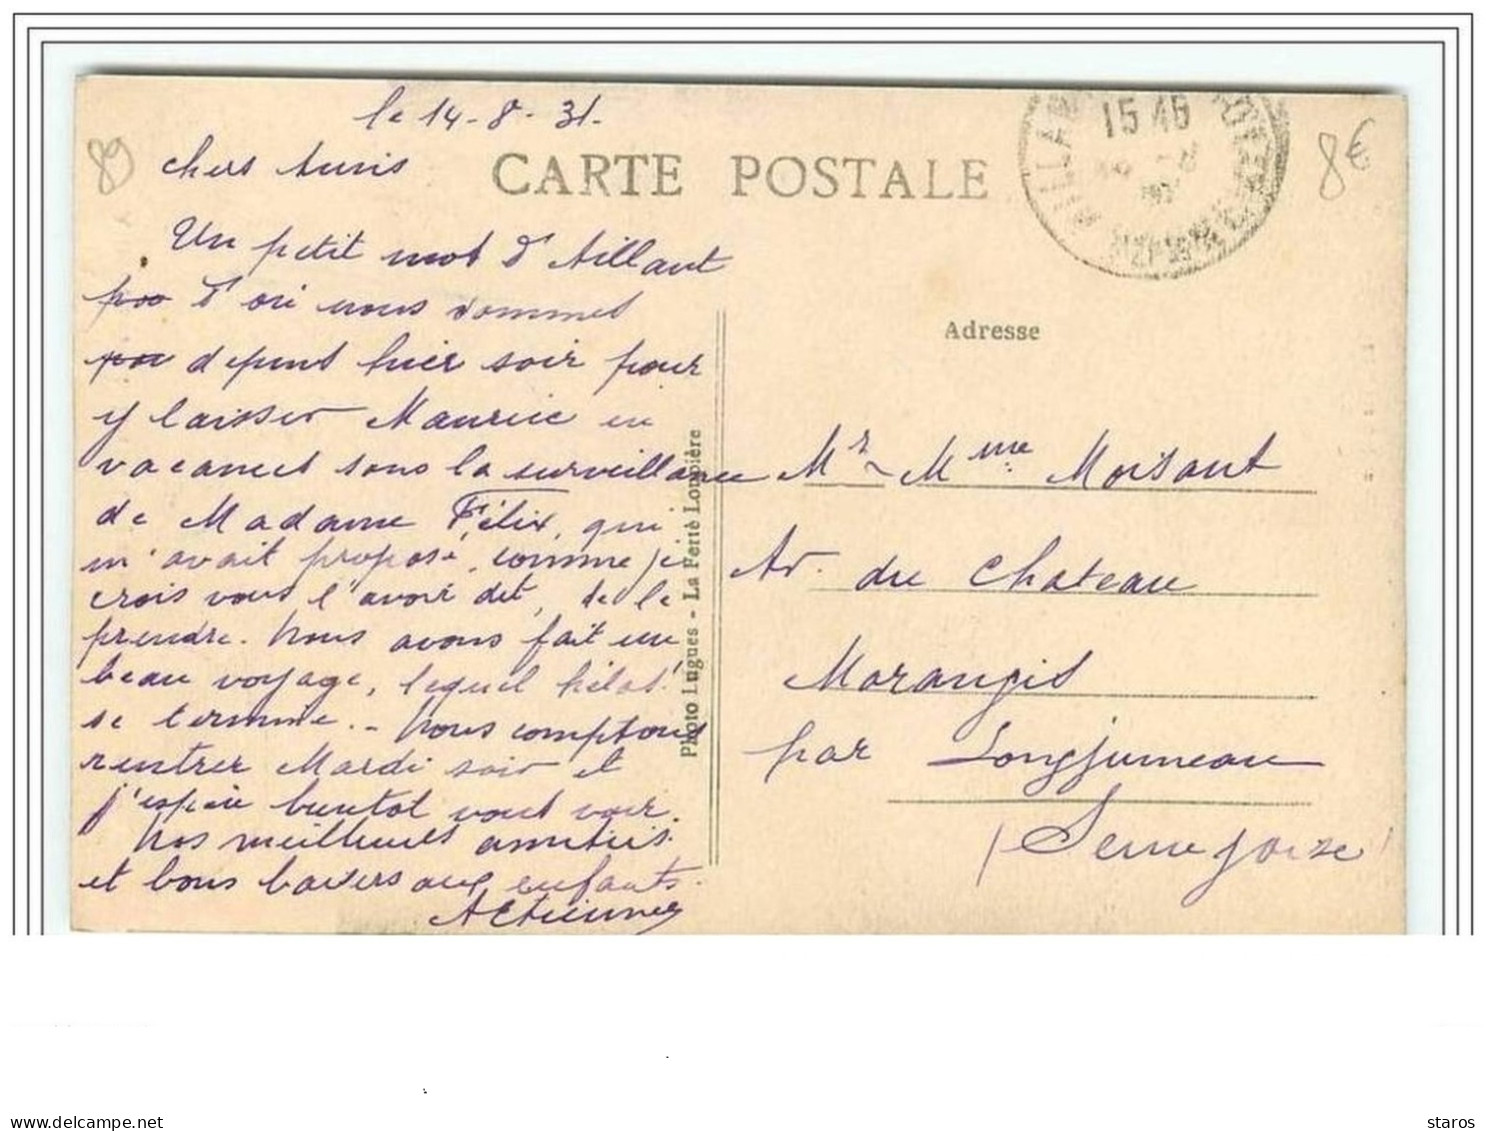 le 14-8-31-
chers Amis
CARTE POSTALE
15 46
89
8€
Un petit mot d'Aillant
d'où nous sommes
depuis hier soir pour
y laisser Maurice en
vacances sous la surveillance
de Madame Félix, qui
m'avait proposé, comme je
crois vous l'avoir dit, de le
prendre. Nous avons fait un
beau voyage, lequel hélas!
se termine. - Nous comptons
rentrer Mardi soir et
j'espère bientot vous voir.
Nos meilleures amitiés
et bons baisers aux enfants.
Photo Lugues - La Ferté Loupière
Adresse
Mr - Mme Moisant
Av. du Chateau
Morangis
par Longjumeau
(Seine &
staros
delcampe.net